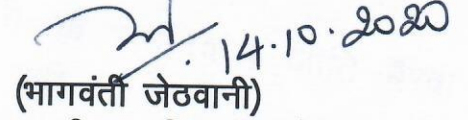 14.10.2020
(भागवंती जेठवानी)